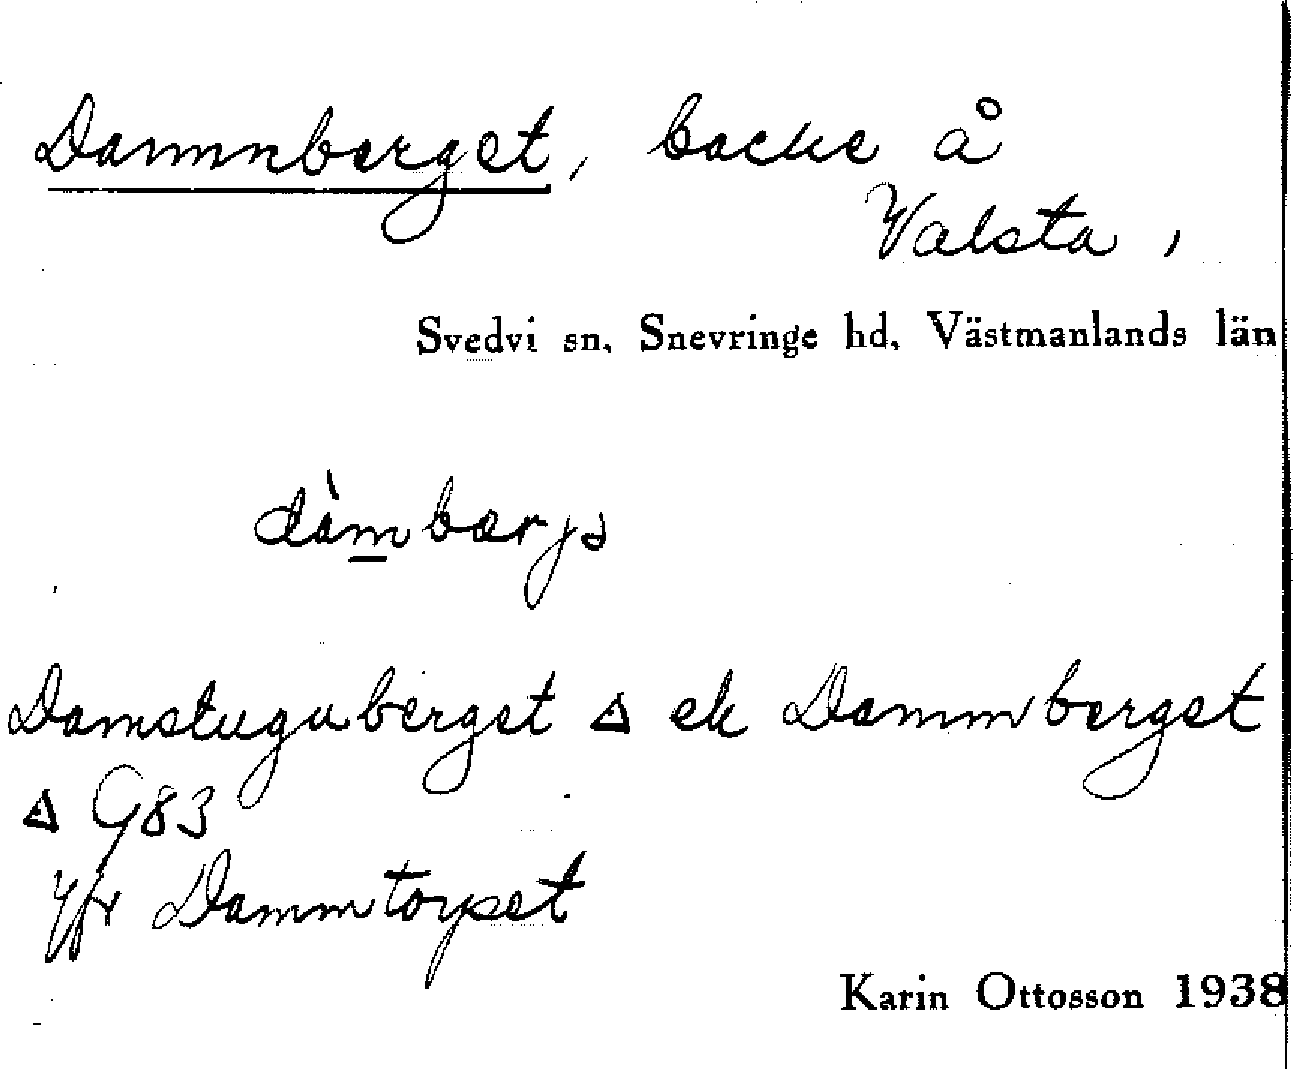 Dammberget, backe å
Valsta,
Svedvi sn, Snevringe hd, Västmanlands län
dàmbærjə
Damstuguberget ∆ ek Dammberget
∆ G83
Jfr Dammtorpet
Karin Ottosson 1938